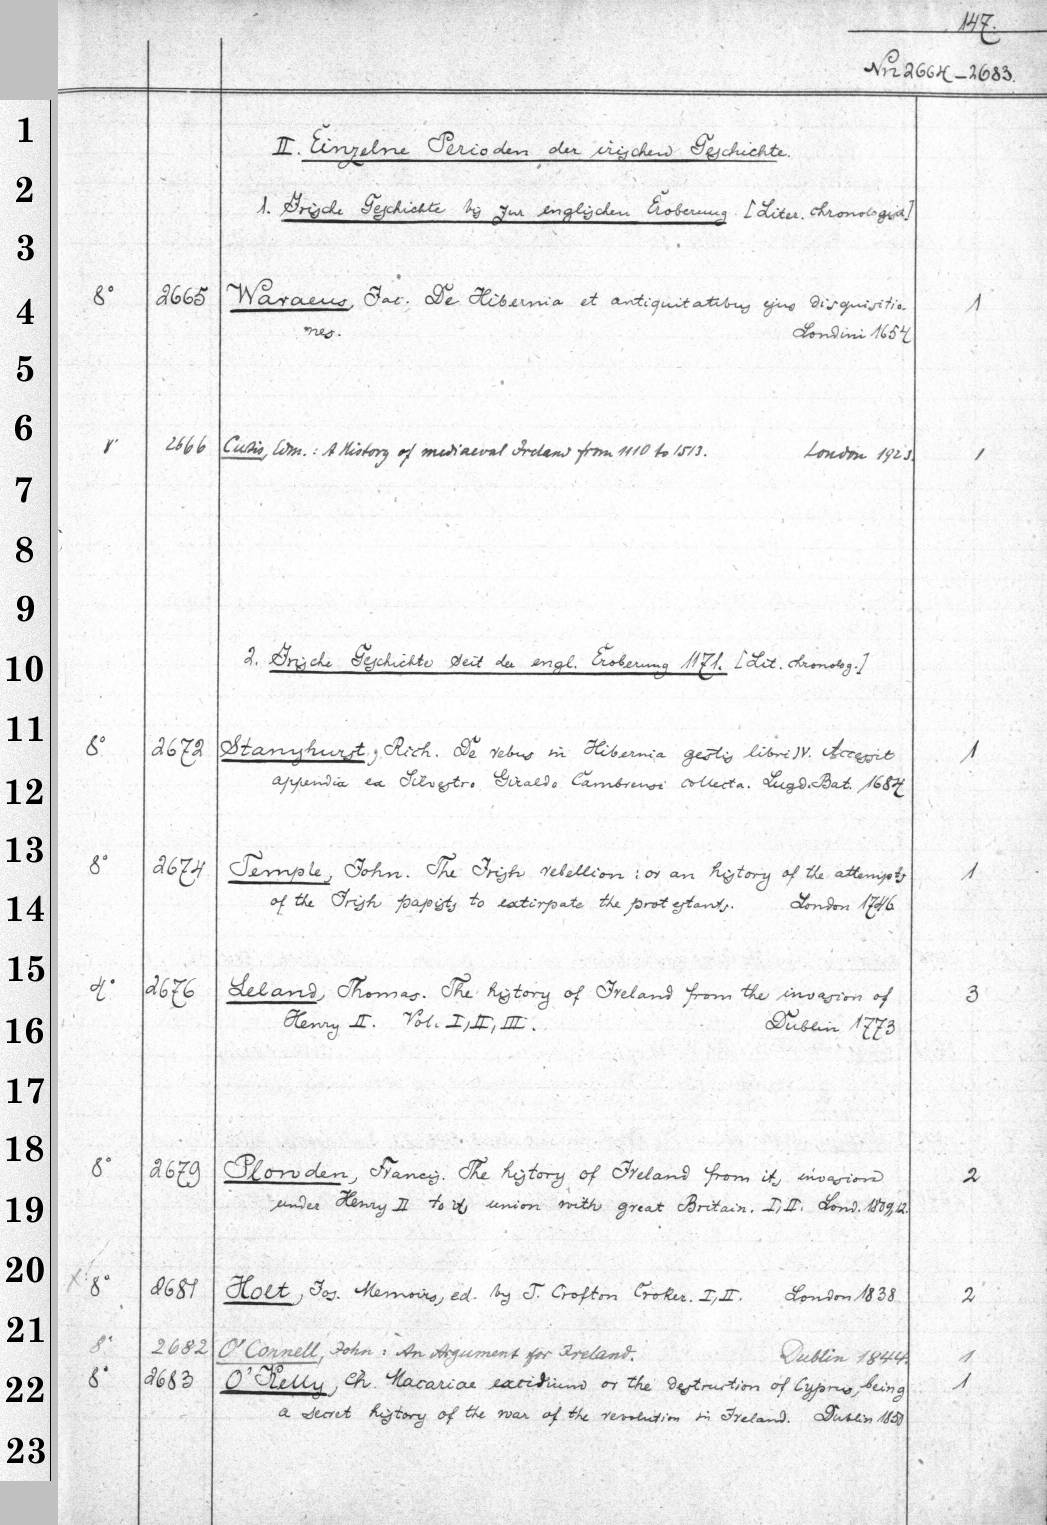 147.
Nr. 2664-2683.
1
II. Einzelne Perioden der irischen Geschichte.
2
1. Irische Geschichte bis zur englischen Eroberung. [Liter. chronologisch]
3
8° 2665 Waraeus, Jac. De Hibernia et antiquitatibus ejus disquisitio- 1
4
nes. Londini 1654
5
6
8° 2666 Curtis, Edm.: A History of mediaeval Ireland from 1110 to 1513. London 1923. 1
7
8
9
10
2. Irische Geschichte seit der engl. Eroberung 1171. [Lit. chronolog.]
11
8° 2672 Stanyhurst, Rich. De rebus in Hibernia gestis libri IV. Accessit 1
12
appendix ex Silvestro Giraldo Cambrensi collecta. Lugd. Bat. 1684
13
8° 2674 Temple, John. The Irish rebellion: or an history of the attempts 1
14
of the Irish papists to extirpate the protestants. London 1746
15
4° 2676 Leland, Thomas. The history of Ireland from the invasion of 3
16
Henry II. Vol. I, II, III. Dublin 1773
17
18
8° 2679 Plowden, Francis. The history of Ireland from its invasion 2
19
under Henry II to its union with great Britain. I, II. Lond. 1809,12.
20
8° 2681 Holt, Jos. Memoirs, ed. by T. Crofton Croker. I, II. London 1838 2
21
8° 2682 O'Connell, John: An Argument for Ireland. Dublin 1844. 1
22
8° 2683 O'Kelly, Ch. Macariae excidium or the destruction of Cyprus, being 1
a secret history of the war of the revolution in Ireland. Dublin 1850
23